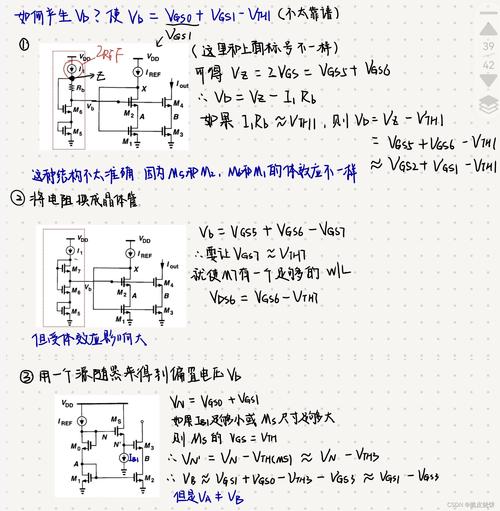 如何产生 Vb? 使 Vb = VGS0 + VGS1 - VTH1 (不太靠谱)
VGS1
①
2REF
VDD
I1
Z
Rb
M6
M5
Vb
VDD
IREF
X
M2
A
M1
Iout
M4
B
M3
(这里和上面标号不一样)
可得 VZ = 2VGS = VGS5 + VGS6
∴ Vb = VZ - I1Rb
如果 I1Rb ≈ VTH1, 则 Vb = VZ - VTH1
= VGS5 + VGS6 - VTH1
≈ VGS2 + VGS1 - VTH1
这种结构不太准确 因为 M5和M2, M6和M1的体效应不一样
② 将电阻换成晶体管
VDD
I1
M7
M6
M5
Vb
VDD
IREF
X
M2
A
M1
Iout
M4
B
M3
Vb = VGS5 + VGS6 - VGS7
∴ 要让 VGS7 ≈ VTH7
就使M7有一个足够的 W/L
VDS6 = VGS6 - VTH7
但受体效应影响大
③ 用一个源跟随器来得到偏置电压 Vb
VDD
IREF
MS
N
N'
M0
M3
A
B
M1
M2
VN = VGS0 + VGS1
如果 IB1足够小或 MS尺寸足够大
则 MS的 VGS = VTH
∴ VN' = VN - VTH(MS) ≈ VN - VTH3
∴ VB ≈ VGS1 + VGS0 - VTH3 - VGS3 ≈ VGS1 - VGS3
但是 VA ≠ VB
39
42